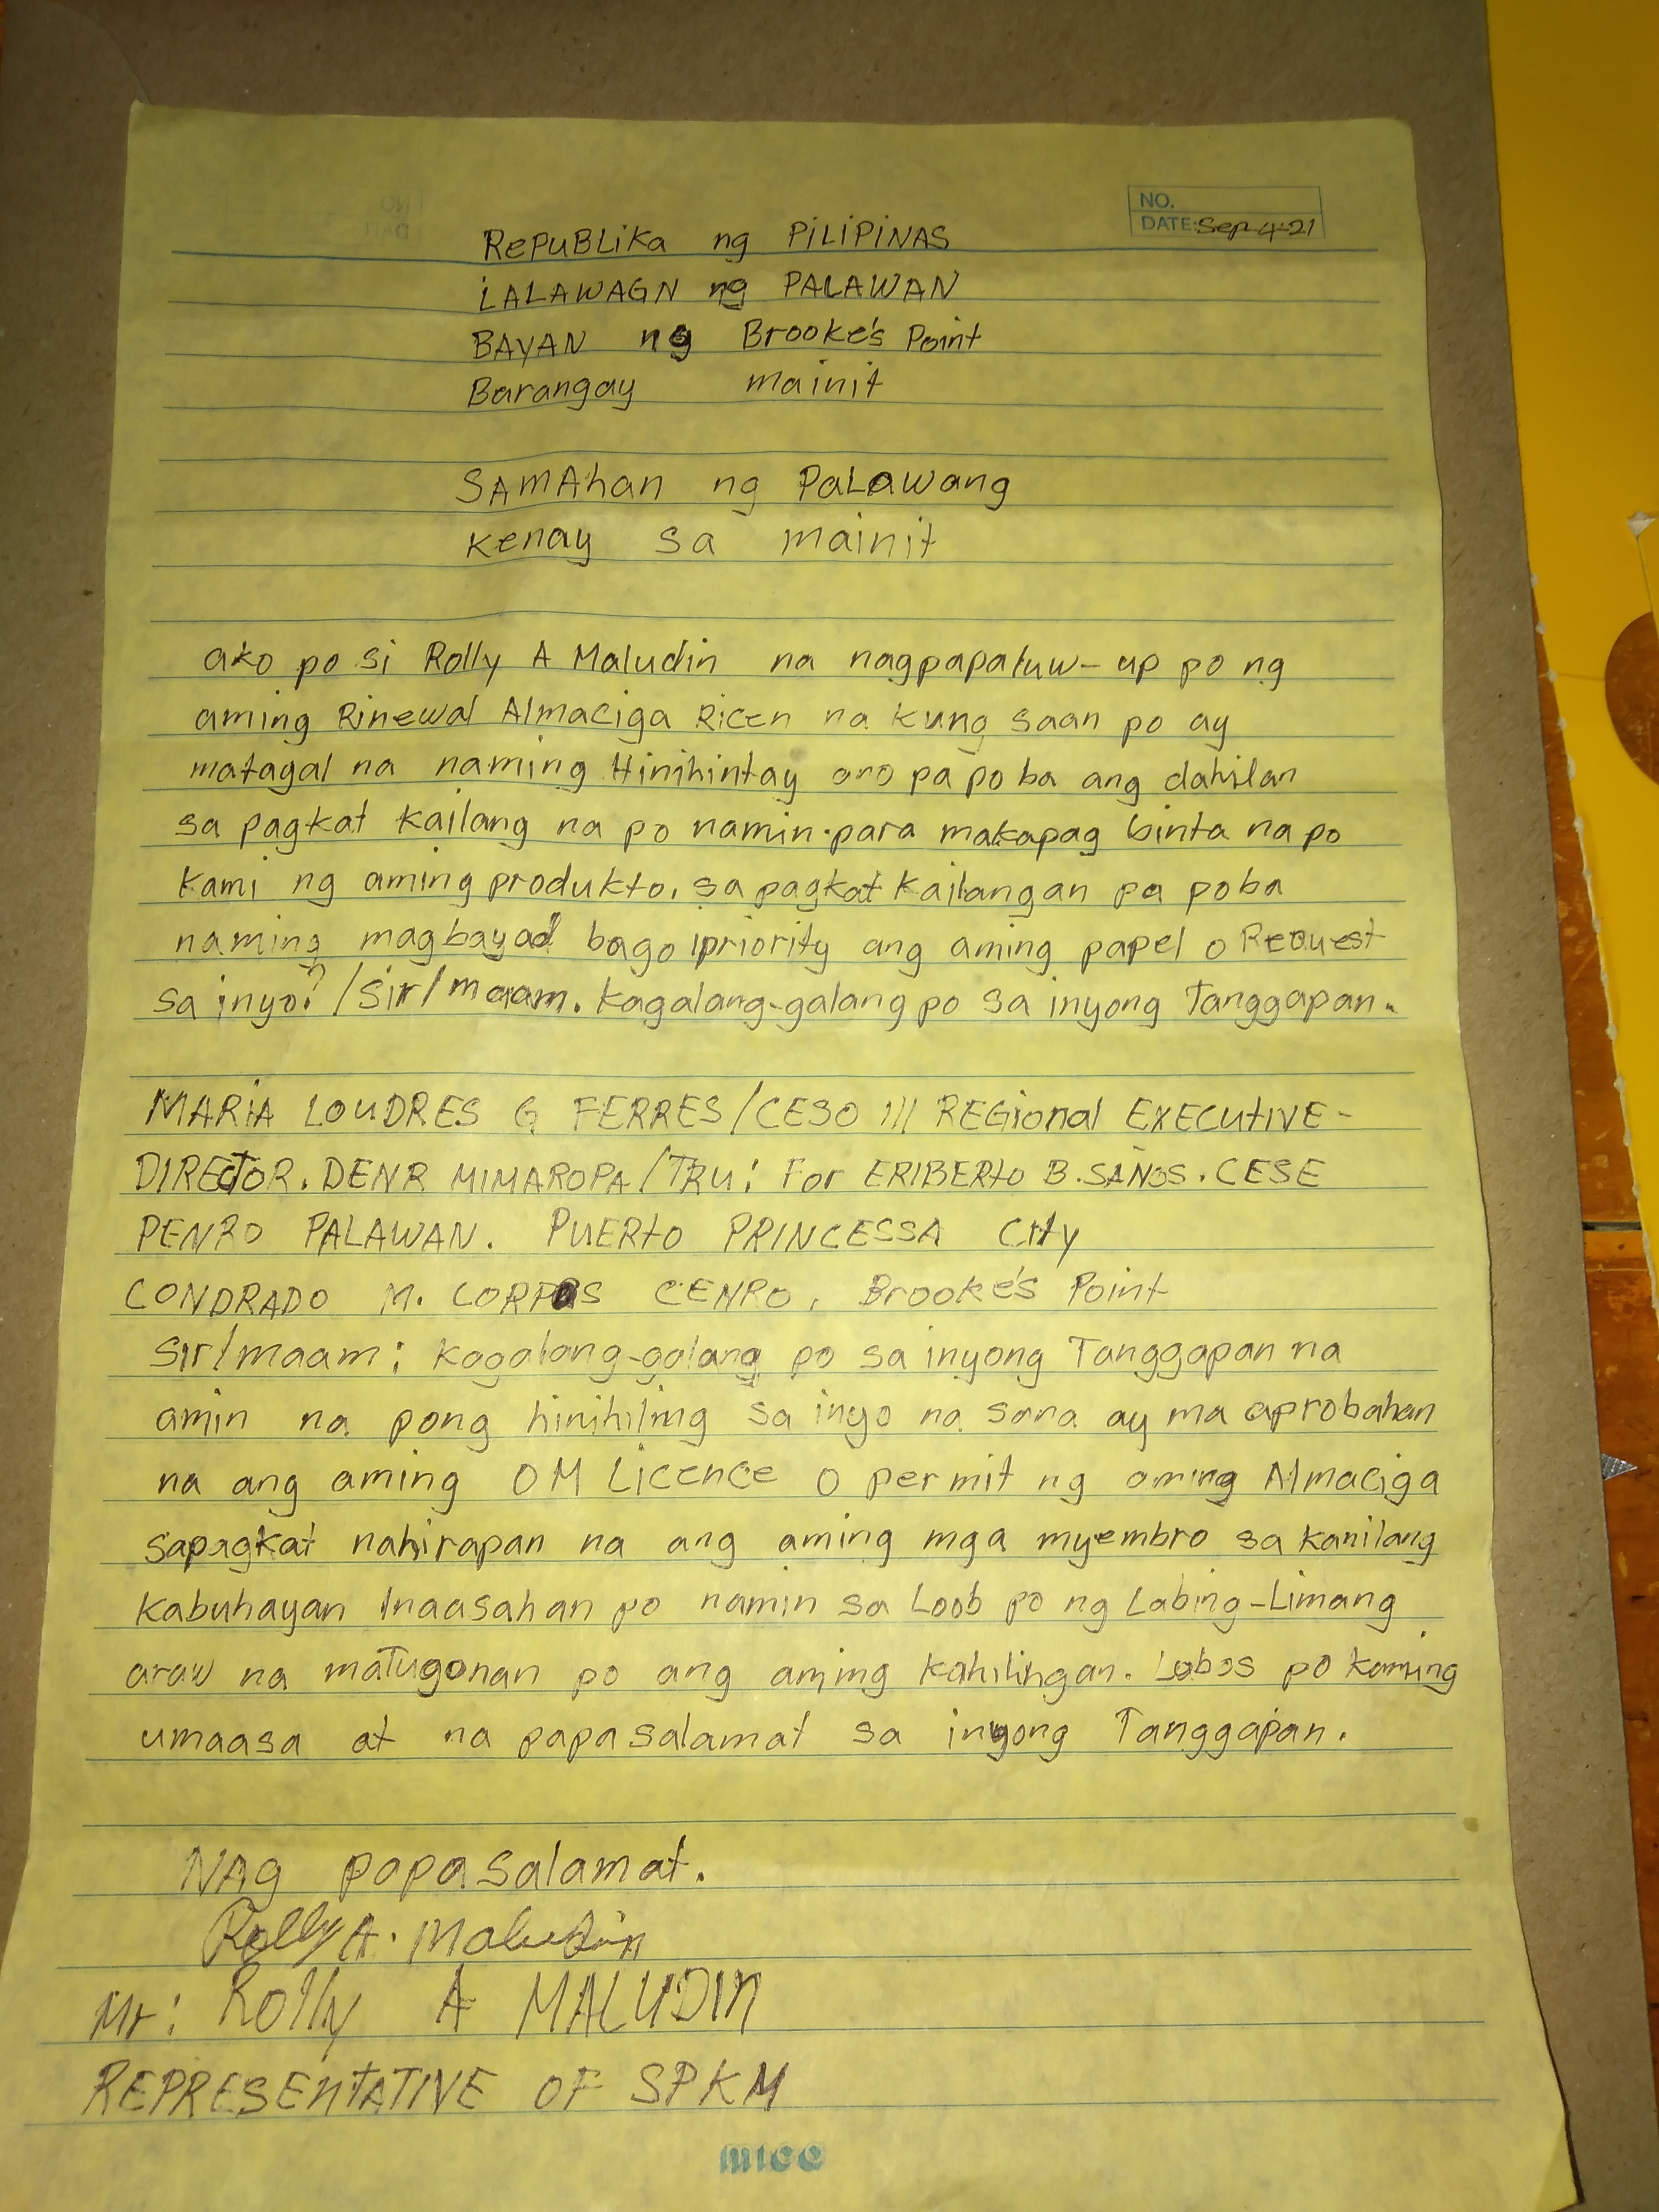 NO.
DATE: Sep-4-21
RePuBLiKa ng PiLiPiNAS
LALAWAGN ng PALAWAN
BAYAN ng Brooke's Point
Barangay mainit
SAMAhan ng PaLawang
kenay sa mainit
ako po si Rolly A Maludin na nagpapaluw-up po ng
aming Rinewal Almaciga Ricen na kung saan po ay
matagal na naming Hinihintay ano pa po ba ang dahilan
sa pagkat kailang na po namin.para makapag binta na po
kami ng aming produkto, sa pagkat kailangan pa poba
naming magbayad bago ipriority ang aming papel o Request
sa inyo? /Sir/maam. kagalang-galang po sa inyong Tanggapan.
MARiA LOUDRES G FERRES/CESO III REGional EXECUtiVE-
DIRECTOR. DENR MIMAROPA/TRU: For ERIBERto B. SAÑOS. CESE
PENRO PALAWAN. PUERto PRINCESSA City
CONDRADO M. CORPUS CENRO, Brooke's Point
Sir/maam: kagalang-galang po sa inyong Tanggapan na
amin na pong hinihiling sa inyo na sana ay ma aprobahan
na ang aming OM Licence o permit ng aming Almaciga
sapagkat nahirapan na ang aming mga myembro sa kanilang
kabuhayan Inaasahan po namin sa Loob po ng Labing-Limang
araw na maTugonan po ang aming kahilingan. Lobos po kaming
umaasa at na papasalamat sa inyong Tanggapan.
NAg papasalamat.
Rolly A. Maludin
Mr: Rolly A MALUDIN
REPRESENTATIVE OF SPKM